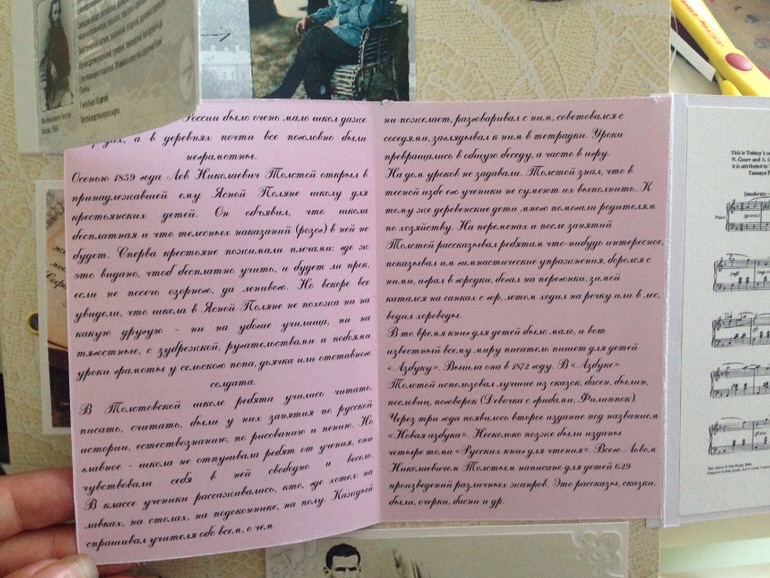 России было очень мало школ даже
а в деревнях почти все поголовно были
неграмотны.
Осенью 1859 года Лев Николаевич Толстой открыл в
принадлежавшей ему Ясной Поляне школу для
крестьянских детей. Он объявил, что школа
бесплатная и что телесных наказаний (розог) в ней не
будет. Сперва крестьяне пожимали плечами: где ж
это видано, чтоб бесплатно учить, и будет ли прок,
если не посечь озорного, да ленивого. Но вскоре все
увидели, что школа в Ясной Поляне не похожа ни на
какую другую - ни на убогие училища, ни на
тягостные, с зубрежкой, ругательствами и побоями
уроки грамоты у сельского попа, дьячка или отставного
солдата.
В Толстовской школе ребята учились читать,
писать, считать, были у них занятия по русской
истории, естествознанию, по рисованию и пению. Но
главное - школа не отпугивала ребят от учения, они
чувствовали себя в ней свободно и весело.
В классе ученики рассаживались, кто, где хотел: на
лавках, на столах, на подоконнике, на полу. Каждый
спрашивал учителя обо всем, о чем
ни пожелает, разговаривал с ним, советовался с
соседями, заглядывал к ним в тетрадки. Уроки
превращались в общую беседу, а часто в игру.
На дом уроков не задавали. Толстой знал, что в
тесной избе его ученики не сумеют их выполнить. К
тому же деревенские дети много помогали родителям
по хозяйству. На переменах и после занятий
Толстой рассказывал ребятам что-нибудь интересное,
показывал им гимнастические упражнения, боролся с
ними, играл в городки, бегал на перегонки, зимой
катался на санках с гор, летом ходил на речку или в лес,
водил хороводы.
В то время книг для детей было мало, и вот
известный всему миру писатель пишет для детей
«Азбуку». Вышла она в 1872 году. В «Азбуке»
Толстой использовал лучшие из сказок, басен, былин,
пословиц, поговорок (Девочка с грибами, Филиппок).
Через три года появилось второе издание под названием
«Новая азбука». Несколько позже были изданы
четыре тома «Русских книг для чтения». Всего Львом
Николаевичем Толстым написано для детей 629
произведений различных жанров. Это рассказы, сказки,
были, очерки, басни и др.
This is Tolstoy's
it is attributed to
Piano